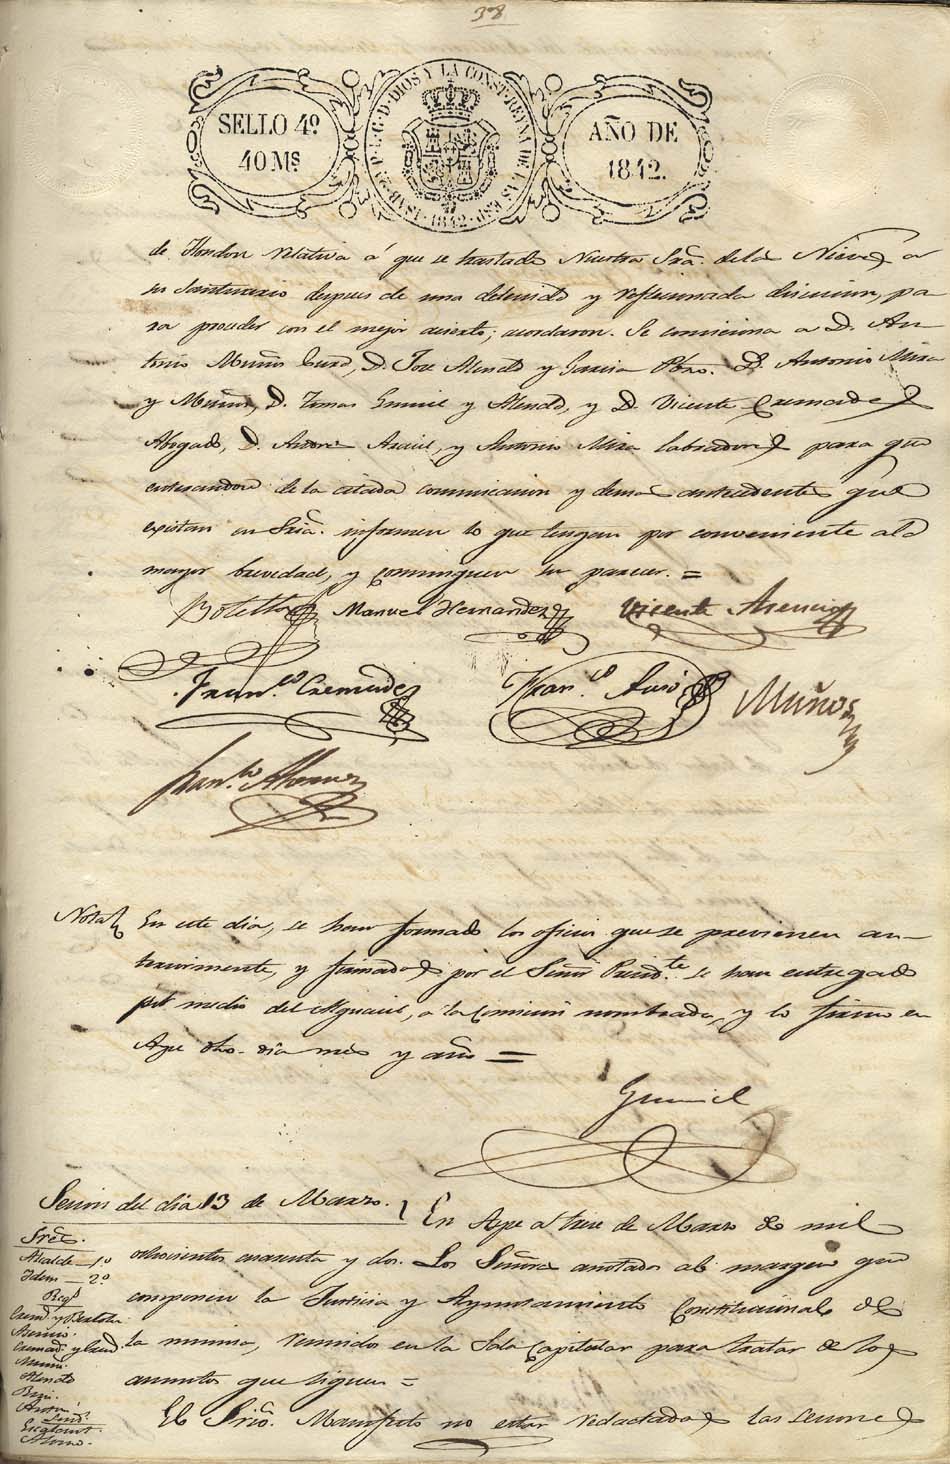 38
SELLO 4º
40 Ms
ISAB. 2ª P. L. G. D. DIOS Y LA CONST. REYNA DE LAS ESP. 1842
AÑO DE
1842.
de Hondon relativa á que se traslade Nuestra Sra. de la Nieves a
su Santuario despues de una detenida y reflecsionada discucion, pa
ra proceder con el mejor acierto; acordaron. Se comiciona a D. An
tonio Muños Cura, D. Jose Alenda y Garcia Pbro. D. Antonio Mira
y Muños, D. Tomas Gumiel y Alenda, y D. Vicente Cremades
Abogado, D. Andres Asauel, y Antonio Mira labradores para que
enterandose de la citada comunicacion y demas antecedentes que
existan en Sria. informen lo que tengan por conveniente a la
mayor brevedad, y consinguen su parecer. =
Botella Manuel Hernandez Vicente Asencio
Fran.co Cremades Fran.co Auso Muños
Fran.co
Nota En este dia, se han formado los oficios que se previenen an-
teriormente, y firmados por el Señor Presid.te se han entregado
por medio del Alguacil, a la Comision nombrada, y lo firmo en
Aspe dho. dia mes y año =
Gumiel
Sesion del dia 13 de Marzo. En Aspe a trece de Marzo de mil
Sres.
Alcalde - 1º
Idem - 2º
Regs
ochocientos cuarenta y dos. Los Señores anotados al margen que
componen la Justicia y Ayuntamiento Constitucional de
la misma, reunidos en la Sala Capitular para tratar de los
asuntos que siguen =
Crem. y Botella
Cremad. y Cred.
Alenda
El Srio. Manifesto no estar redactadas las sesiones